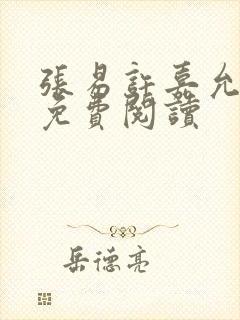 張易許嘉允
免費閱讀
岳德亮